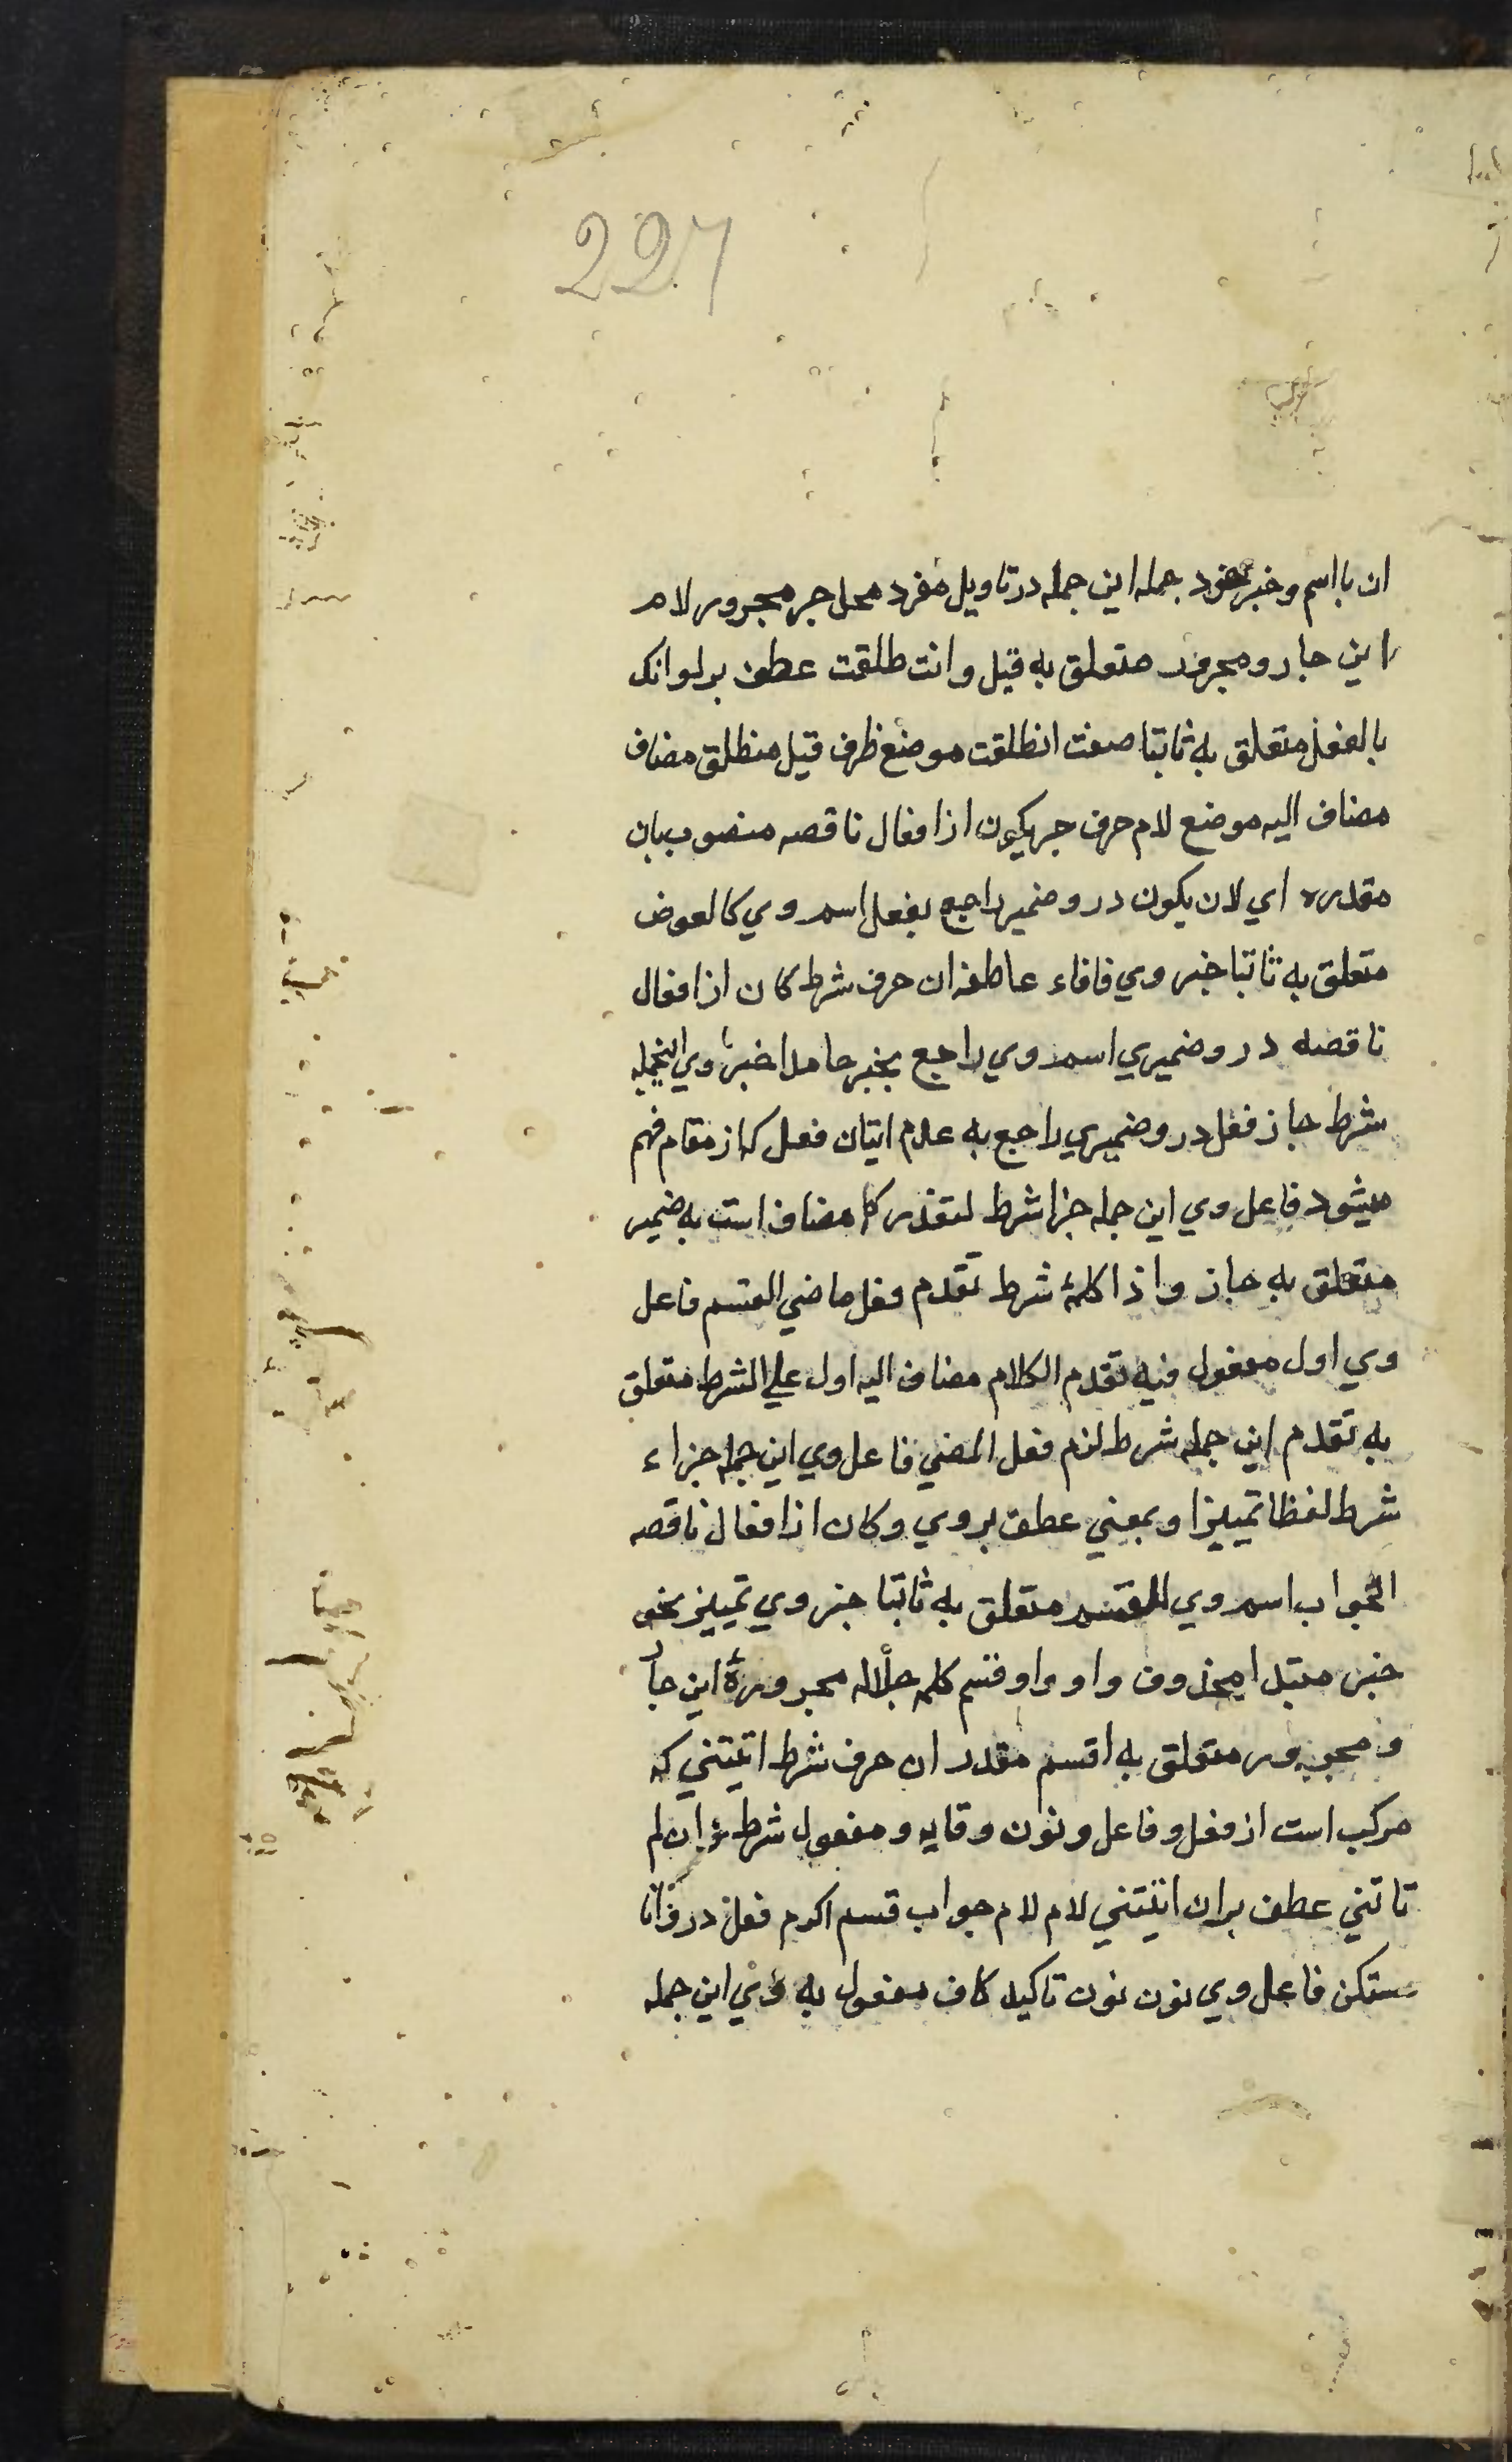 227
ان با اسم و خبر خود جمله این جمله در تاویل مفرد محل جر مجرور لام
این جار و مجرور متعلق به قیل و انت طلقت عطف بر لو انک
بالفعل متعلق به ثابتا صفت انطلقت موضع ظرف قیل منطلق مضاف
مضاف الیه موضع لام حرف جر یکون از افعال ناقصه منصوب بان
مقدره ای لان یکون درو ضمیر راجع بفعل اسم وي کالعوض
متعلق به ثابتا خبر وي فا فاء عاطفه ان حرف شرط کان از افعال
ناقصه درو ضمیري اسم وي راجع بخبر جامدا خبر وي اینجمله
شرط جاز فعل درو ضمیري راجع به عدم اتیان فعل که از مقام فهم
میشود فاعل وي این جمله جزا شرط لتعذر که مضاف است به ضمیر
متعلق به جاز و اذا کلمۀ شرط تقدم فعل ماضي القسم فاعل
وي اول مفعول فیه تقدم الکلام مضاف الیه اول علي الشرط متعلق
به تقدم این جمله شرط لزم فعل المضي فاعل وي این جمله جزاء
شرط لفظا تمییزا و بمعني عطف بر وي و کان از افعال ناقصه
الجواب اسم وي للقسم متعلق به ثابتا خبر وي تمییز نحو
خبر مبتدا محذوف واو واو قسم کلمه جلاله مجروره این جار
و مجرور متعلق به اقسم مقدر ان حرف شرط اتیتني که
مرکب است از فعل و فاعل و نون وقایه و مفعول شرط و ان لم
تاتني عطف بر ان اتیتني لام لام جواب قسم اکرم فعل درو انا
مستکن فاعل وي نون نون تاکید کاف مفعول به وي این جمله